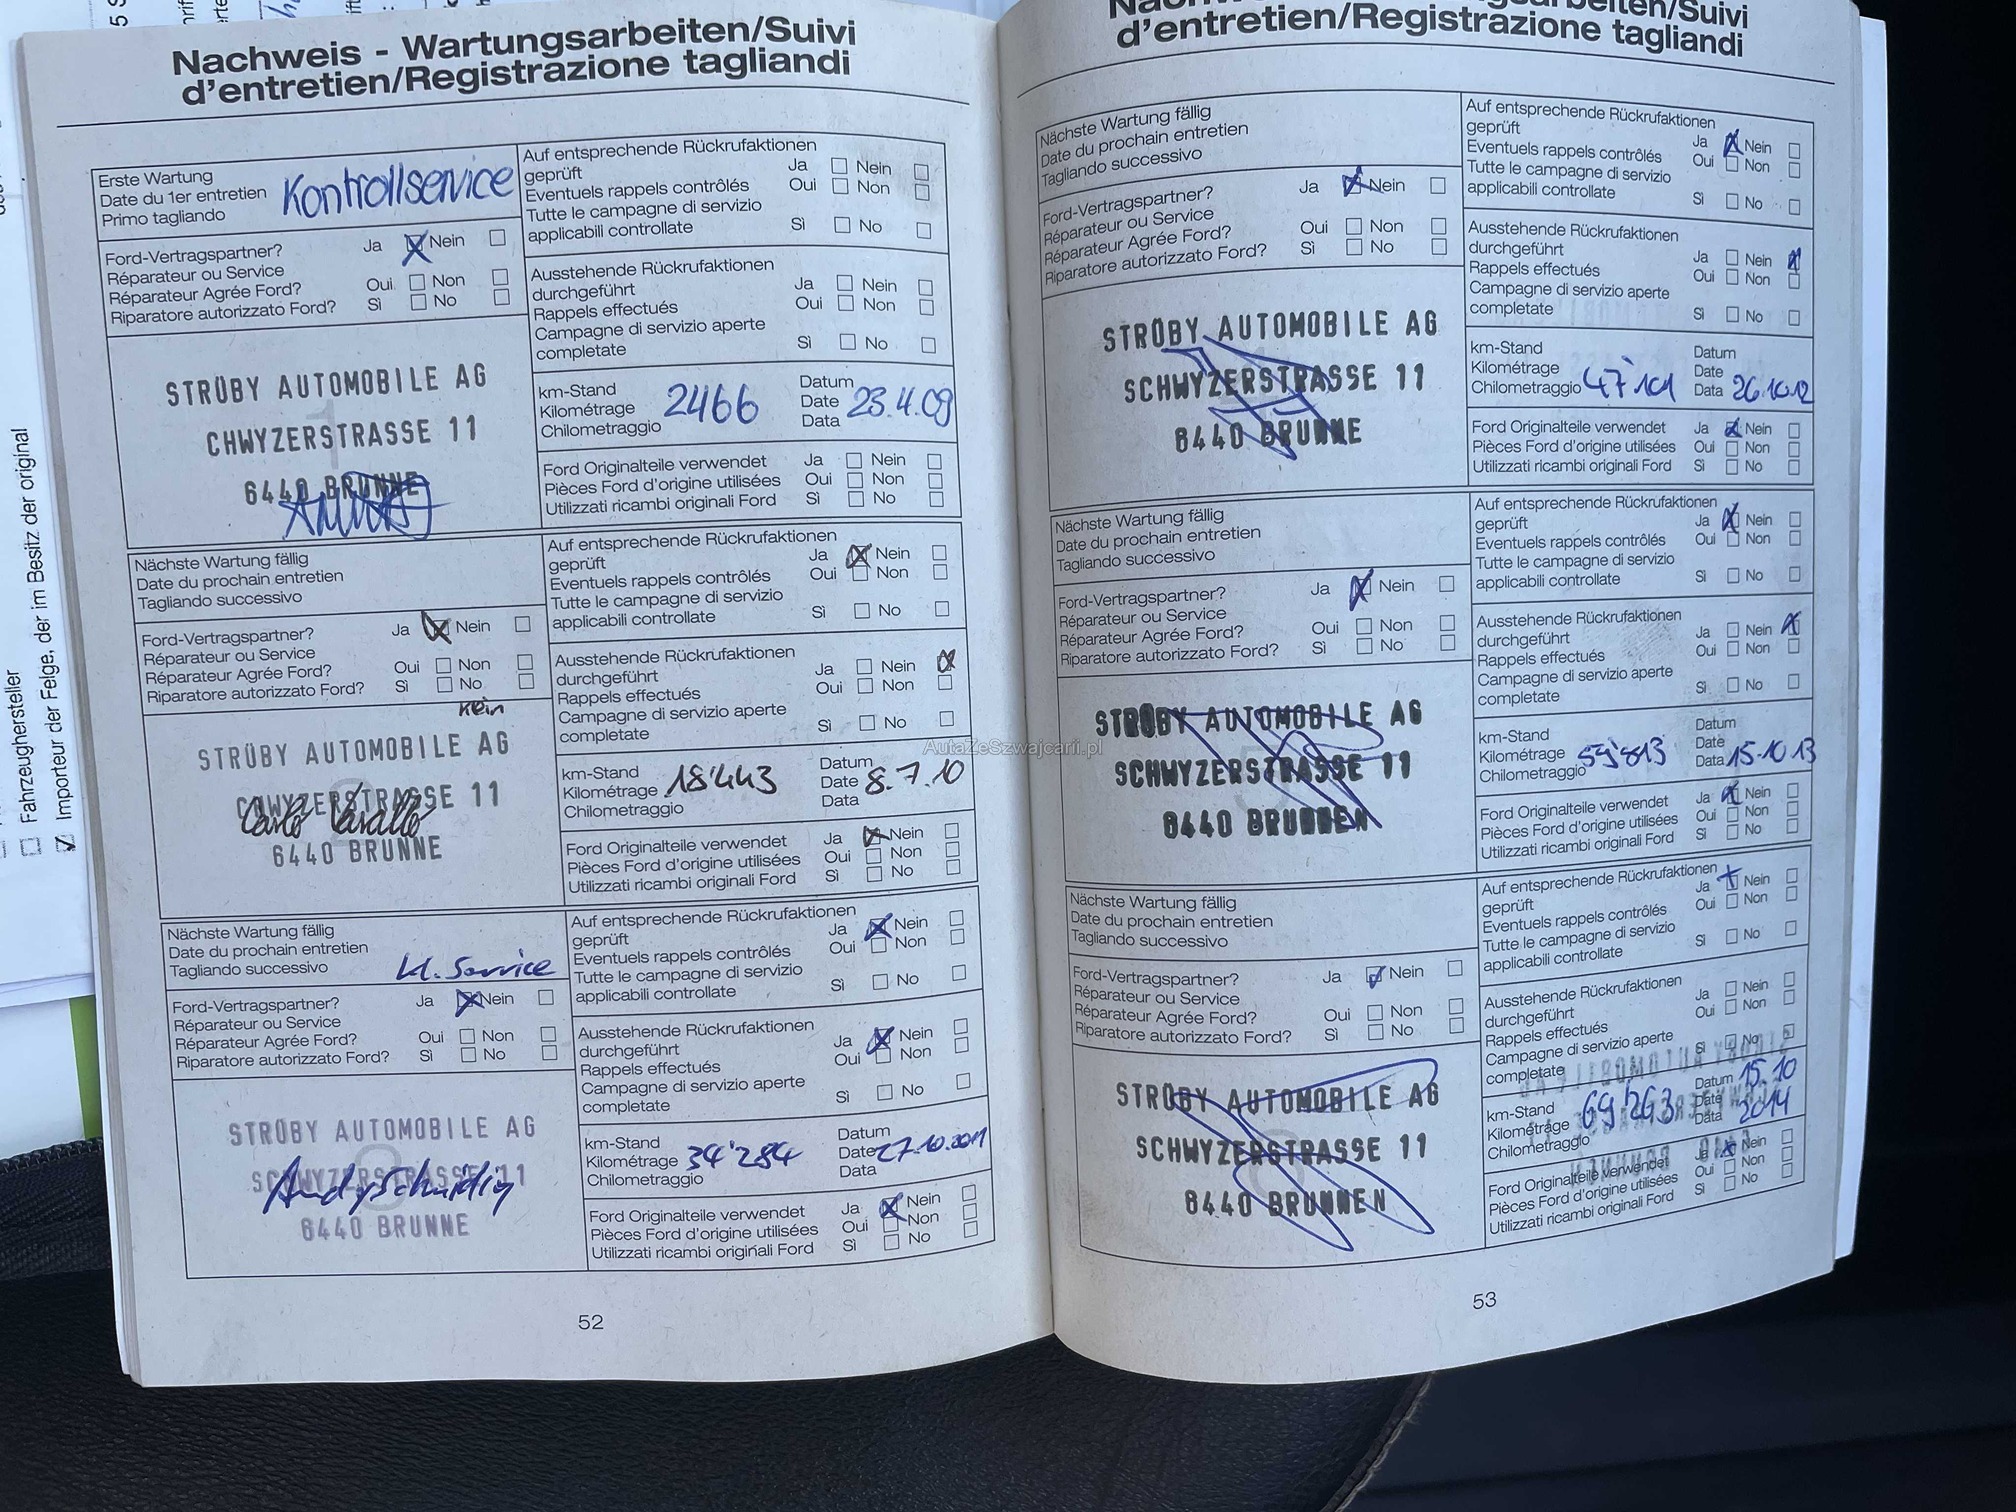 Nachweis - Wartungsarbeiten/Suivi
d'entretien/Registrazione tagliandi
Erste Wartung
Date du 1er entretien
Primo tagliando
Kontrollservice
Ford-Vertragspartner? Ja Nein
Réparateur ou Service
Réparateur Agrée Ford? Oui Non
Riparatore autorizzato Ford? Sì No
STRÜBY AUTOMOBILE AG
CHWYZERSTRASSE 11
6440 BRUNNE
Auf entsprechende Rückrufaktionen
geprüft Ja Nein
Eventuels rappels contrôlés Oui Non
Tutte le campagne di servizio
applicabili controllate Sì No
Ausstehende Rückrufaktionen
durchgeführt Ja Nein
Rappels effectués Oui Non
Campagne di servizio aperte
completate Sì No
km-Stand Datum
Kilométrage 2466 Date 23.4.09
Chilometraggio Data
Ford Originalteile verwendet Ja Nein
Pièces Ford d'origine utilisées Oui Non
Utilizzati ricambi originali Ford Sì No
Nächste Wartung fällig
Date du prochain entretien
Tagliando successivo
Ford-Vertragspartner? Ja Nein
Réparateur ou Service
Réparateur Agrée Ford? Oui Non
Riparatore autorizzato Ford? Sì No
Klein
STRÜBY AUTOMOBILE AG
CHWYZERSTRASSE 11
6440 BRUNNE
Auf entsprechende Rückrufaktionen
geprüft Ja Nein
Eventuels rappels contrôlés Oui Non
Tutte le campagne di servizio
applicabili controllate Sì No
Ausstehende Rückrufaktionen
durchgeführt Ja Nein
Rappels effectués Oui Non
Campagne di servizio aperte
completate Sì No
km-Stand Datum
Kilométrage 18'443 Date 8.7.10
Chilometraggio Data
Ford Originalteile verwendet Ja Nein
Pièces Ford d'origine utilisées Oui Non
Utilizzati ricambi originali Ford Sì No
Nächste Wartung fällig
Date du prochain entretien
Tagliando successivo kl. Service
Ford-Vertragspartner? Ja Nein
Réparateur ou Service
Réparateur Agrée Ford? Oui Non
Riparatore autorizzato Ford? Sì No
STRÜBY AUTOMOBILE AG
SCHWYZERSTRASSE 11
6440 BRUNNE
Auf entsprechende Rückrufaktionen
geprüft Ja Nein
Eventuels rappels contrôlés Oui Non
Tutte le campagne di servizio
applicabili controllate Sì No
Ausstehende Rückrufaktionen
durchgeführt Ja Nein
Rappels effectués Oui Non
Campagne di servizio aperte
completate Sì No
km-Stand Datum
Kilométrage 34'284 Date 27.10.2011
Chilometraggio Data
Ford Originalteile verwendet Ja Nein
Pièces Ford d'origine utilisées Oui Non
Utilizzati ricambi originali Ford Sì No
52
d'entretien/Registrazione tagliandi
Nächste Wartung fällig
Date du prochain entretien
Tagliando successivo
Ford-Vertragspartner? Ja Nein
Réparateur ou Service
Réparateur Agrée Ford? Oui Non
Riparatore autorizzato Ford? Sì No
STRÜBY AUTOMOBILE AG
SCHWYZERSTRASSE 11
6440 BRUNNE
Auf entsprechende Rückrufaktionen
geprüft Ja Nein
Eventuels rappels contrôlés Oui Non
Tutte le campagne di servizio
applicabili controllate Sì No
Ausstehende Rückrufaktionen
durchgeführt Ja Nein
Rappels effectués Oui Non
Campagne di servizio aperte
completate Sì No
km-Stand Datum
Kilométrage Date
Chilometraggio 47'101 Data 26.10.12
Ford Originalteile verwendet Ja Nein
Pièces Ford d'origine utilisées Oui Non
Utilizzati ricambi originali Ford Sì No
Nächste Wartung fällig
Date du prochain entretien
Tagliando successivo
Ford-Vertragspartner? Ja Nein
Réparateur ou Service
Réparateur Agrée Ford? Oui Non
Riparatore autorizzato Ford? Sì No
STRÜBY AUTOMOBILE AG
SCHWYZERSTRASSE 11
6440 BRUNNEN
Auf entsprechende Rückrufaktionen
geprüft Ja Nein
Eventuels rappels contrôlés Oui Non
Tutte le campagne di servizio
applicabili controllate Sì No
Ausstehende Rückrufaktionen
durchgeführt Ja Nein
Rappels effectués Oui Non
Campagne di servizio aperte
completate Sì No
km-Stand Datum
Kilométrage 59'813 Date
Chilometraggio Data 15.10.13
Ford Originalteile verwendet Ja Nein
Pièces Ford d'origine utilisées Oui Non
Utilizzati ricambi originali Ford Sì No
Nächste Wartung fällig
Date du prochain entretien
Tagliando successivo
Ford-Vertragspartner? Ja Nein
Réparateur ou Service
Réparateur Agrée Ford? Oui Non
Riparatore autorizzato Ford? Sì No
STRÜBY AUTOMOBILE AG
SCHWYZERSTRASSE 11
6440 BRUNNEN
Auf entsprechende Rückrufaktionen
geprüft Ja Nein
Eventuels rappels contrôlés Oui Non
Tutte le campagne di servizio
applicabili controllate Sì No
Ausstehende Rückrufaktionen
durchgeführt Ja Nein
Rappels effectués Oui Non
Campagne di servizio aperte
completate Sì No
km-Stand Datum 15.10
Kilométrage 69'263 Date 2014
Chilometraggio Data
Ford Originalteile verwendet Ja Nein
Pièces Ford d'origine utilisées Oui Non
Utilizzati ricambi originali Ford Sì No
53
Fahrzeughersteller
Importeur der Felge, der im Besitz der original
AutaZeSzwajcarii.pl